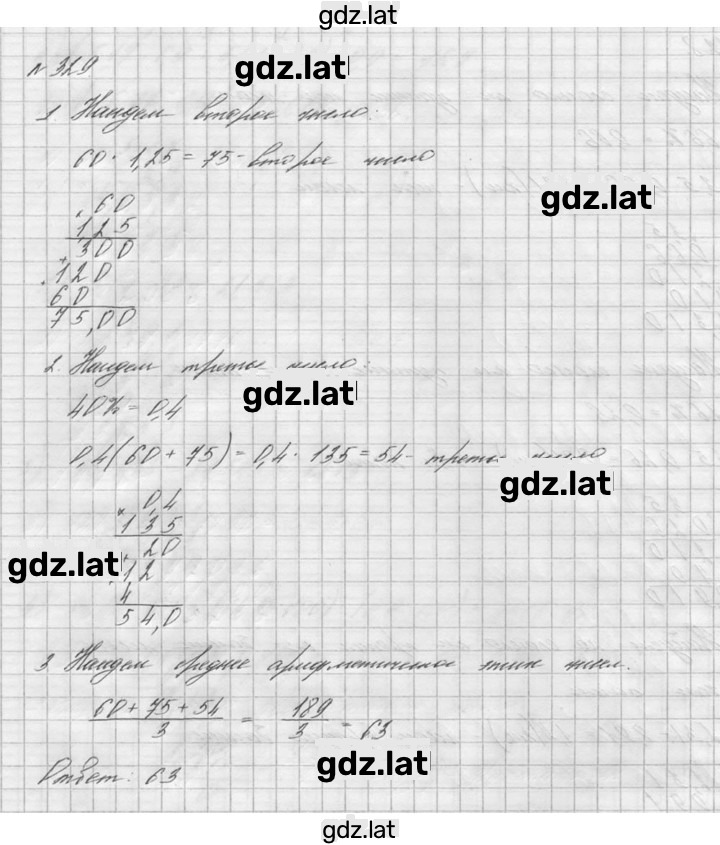 gdz.lat
№ 329
gdz.lat
1. Найдем второе число:
60 · 1,25 = 75 - второе число
gdz.lat
× 60
125
+ 300
120
60
75,00
2. Найдем третье число:
gdz.lat
40% = 0,4
0,4(60 + 75) = 0,4 · 135 = 54 - третье число
gdz.lat
× 0,4
135
+ 20
gdz.lat
12
4
54,0
3. Найдем среднее арифметическое этих чисел.
60 + 75 + 54 / 3 = 189 / 3 = 63
gdz.lat
Ответ: 63
gdz.lat